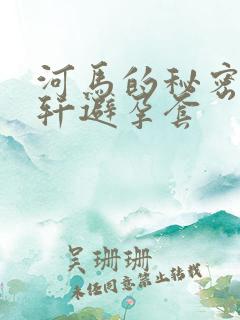 河马的秘密
轩避孕套
吴珊珊
未经同意禁止转载